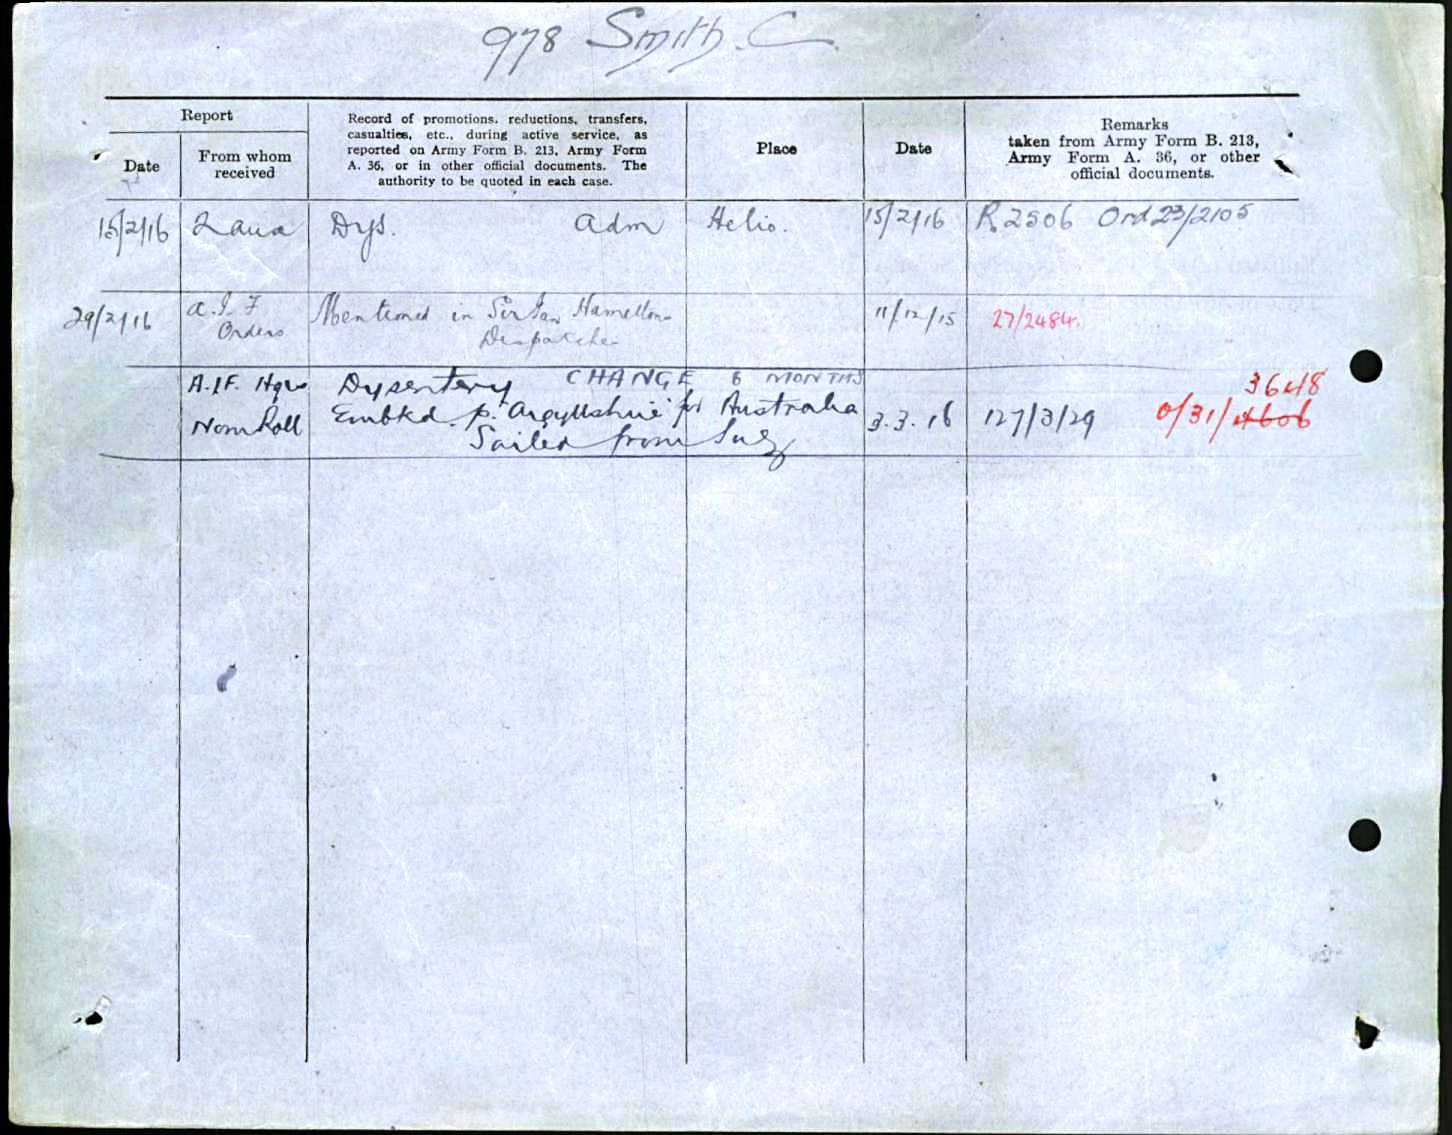 978 Smith. C.
Report
Date
From whom
received
Record of promotions, reductions, transfers,
casualties, etc., during active service, as
reported on Army Form B. 213, Army Form
A. 36, or in other official documents. The
authority to be quoted in each case.
Place
Date
Remarks
taken from Army Form B. 213,
Army Form A. 36, or other
official documents.
15/2/16 Dys. Adm Helio. 15/2/16 R2506 Ord 23/2105
29/2/16 A.I.F Orders Mentioned in Sir Ian Hamiltons 11/12/15 27/2484.
Despatches
A.I.F. Hqrs Dysentery CHANGE 6 MONTHS 3648
Nom Roll Embkd p. "Argyllshire" for Australia 3.3.16 127/3/29 0/31/4606
Sailed from Suez